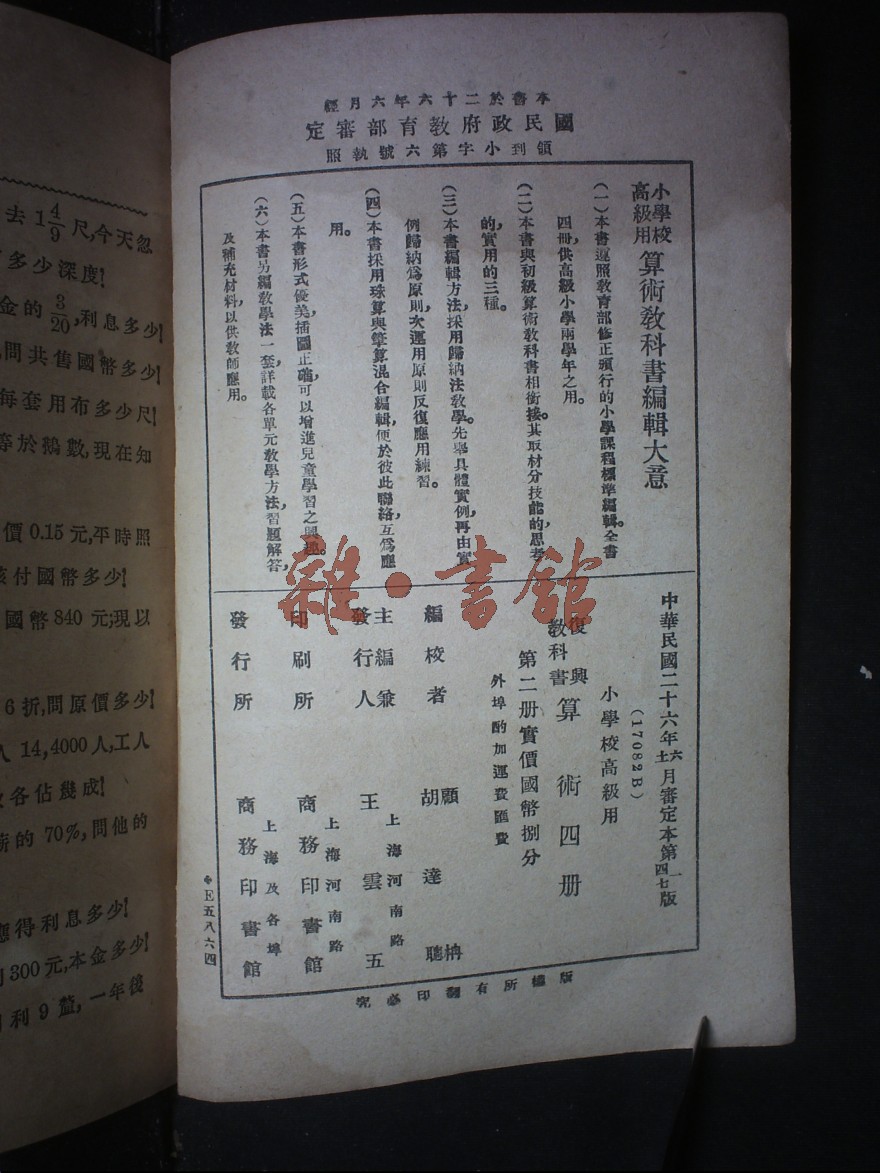 本書於二十六年六月經
國民政府教育部審定
領到小字第六號執照
小學校
高級用
算術教科書編輯大意
(一)本書遵照教育部修正頒行的小學課程標準編輯。全書
四冊,供高級小學兩學年之用。
(二)本書與初級算術教科書相銜接。其取材分技能的,思考
的,實用的三種。
(三)本書編輯方法,採用歸納法教學。先舉具體實例,再由實
例歸納爲原則,次運用原則反復應用練習。
(四)本書採用珠算與筆算混合編輯,便於彼此聯絡,互爲應
用。
(五)本書形式優美,插圖正確,可以增進兒童學習之興趣。
(六)本書另編教學法一套,詳載各單元教學方法,習題解答,
及補充材料,以供教師應用。
中華民國二十六年六月審定本第一版
十一 四七
(17082B)
小學校高級用
復興
教科書
算術四册
第二册實價國幣捌分
外埠酌加運費匯費
編校者 顧 柟
胡達聰
主編兼
發行人
王雲五
上海河南路
印刷所
商務印書館
上海河南路
發行所
商務印書館
上海及各埠
版權所有翻印必究
E五八六四
雜·書館
去1 4/9 尺,今天忽
多少深度!
金的 3/20,利息多少!
問共售國幣多少!
每套用布多少尺!
等於鵝數,現在知
價0.15元,平時照
該付國幣多少!
國幣840元;現以
6折,問原價多少!
14,4000人,工人
各佔幾成!
薪的70%,問他的
應得利息多少!
300元,本金多少!
利9釐,一年後